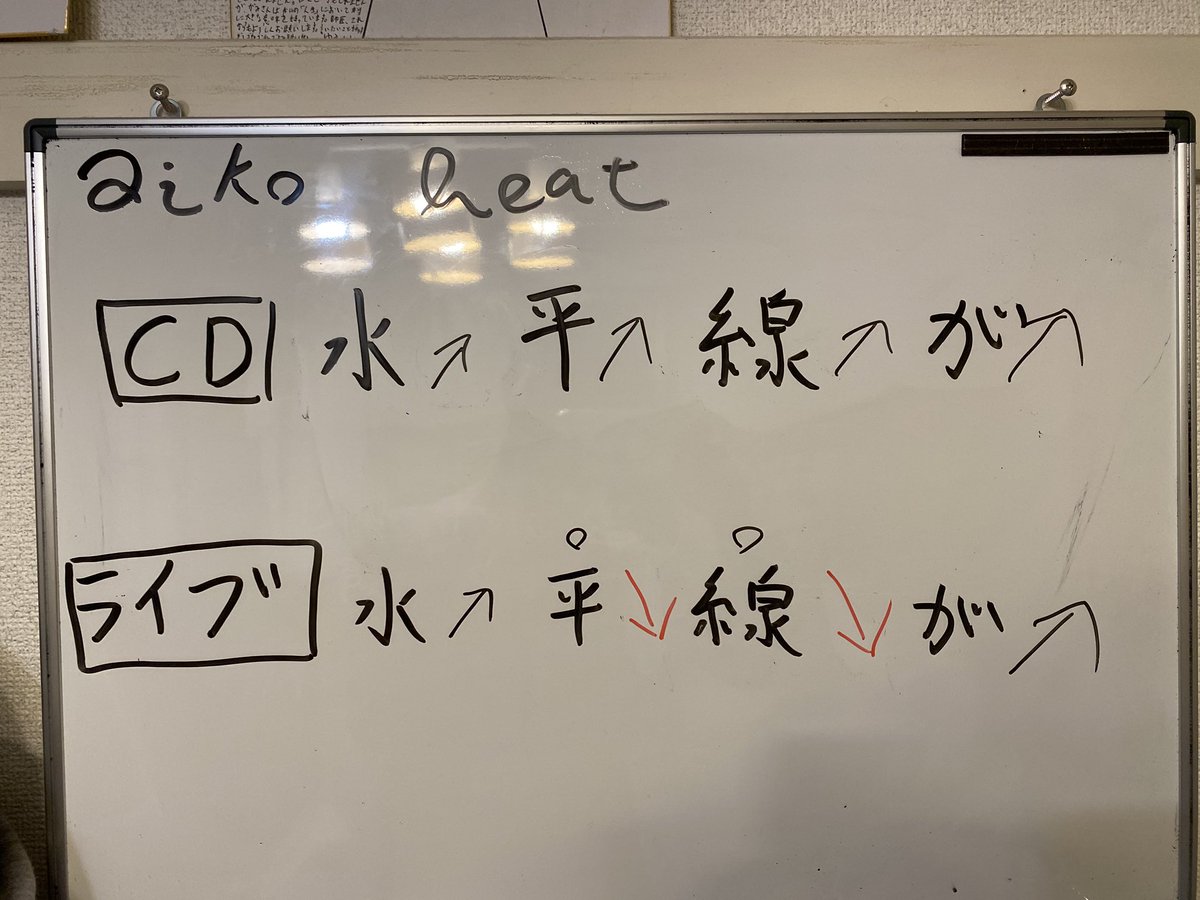 aiko heat
CD 水↗ 平↗ 線↗ が↗
ライブ 水↗ 平↘ 線↘ が↗